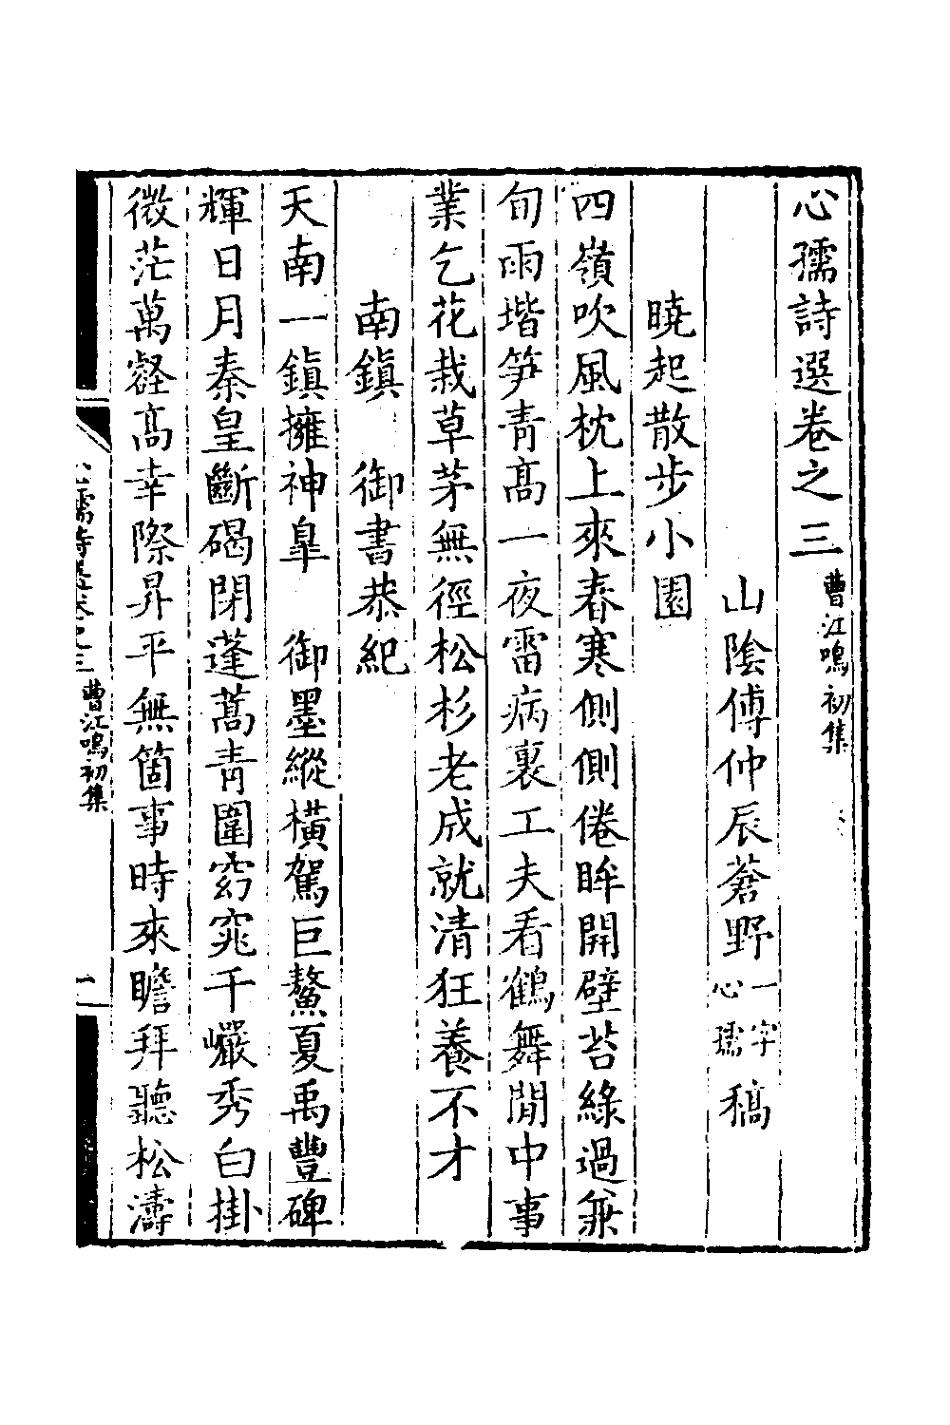 心孺詩選卷之三 曹江鳴初集
山陰傅仲辰蒼野一字心孺稿
曉起散步小園
四嶺吹風枕上來春寒側側倦眸開壁苔綠過兼
旬雨堦笋青髙一夜雷病裏工夫看鶴舞閒中事
業乞花栽草茅無徑松杉老成就清狂養不才
南鎮 御書恭紀
天南一鎮擁神臯 御墨縱橫駕巨鰲夏禹豐碑
輝日月秦皇斷碣閉蓬蒿青圍窈窕千巗秀白掛
微茫萬壑髙幸際昇平無箇事時來瞻拜聽松濤
心孺詩選卷之三 曹江鳴初集 一